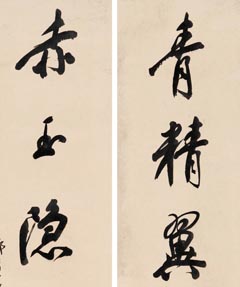 青精翼
赤玉隐